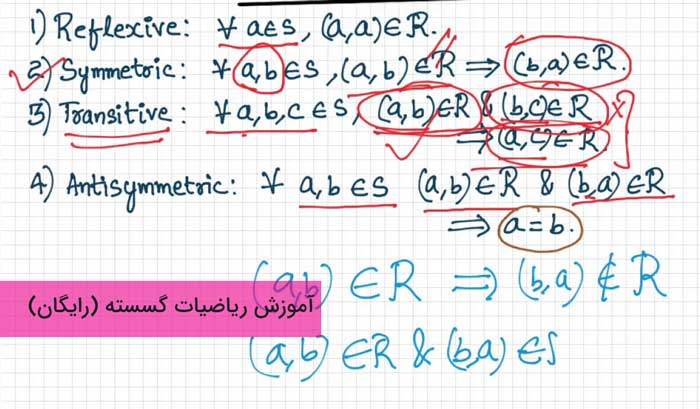 1) Reflexive: ∀ a∈S, (a,a)∈R.
2) Symmetric: ∀ a,b∈S, (a,b)∈R ⟹ (b,a)∈R.
3) Transitive: ∀ a,b,c∈S, (a,b)∈R & (b,c)∈R
⟹ (a,c)∈R.
4) Antisymmetric: ∀ a,b∈S (a,b)∈R & (b,a)∈R
⟹ a=b.
(a,b) ∈R ⟹ (b,a) ∉ R
آموزش ریاضیات گسسته (رایگان)
(a,b) ∈R & (b,a) ∈S